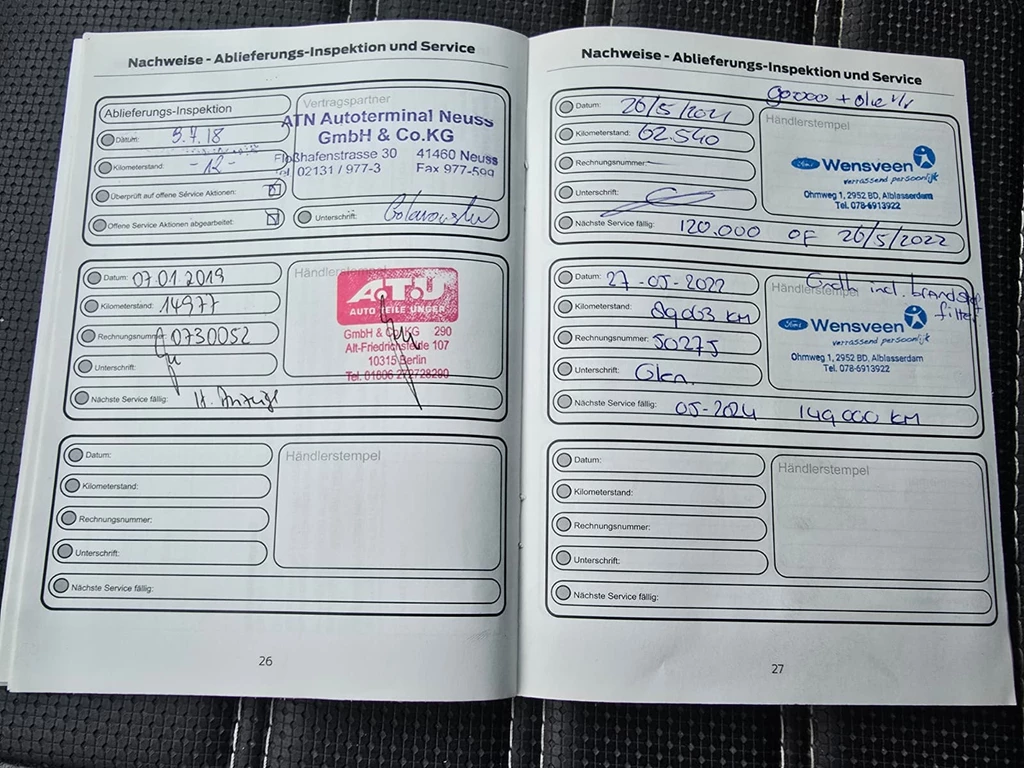 Nachweise - Ablieferungs-Inspektion und Service
Ablieferungs-Inspektion
Datum: 5.7.18
Kilometerstand: -12-
Überprüft auf offene Service Aktionen:
Offene Service Aktionen abgearbeitet:
Vertragspartner
ATN Autoterminal Neuss
GmbH & Co.KG
Floßhafenstrasse 30 41460 Neuss
Tel 02131 / 977-3 Fax 977-599
Unterschrift:
Datum: 07.01.2019
Kilometerstand: 14977
Rechnungsnummer: 0730052
Unterschrift:
Nächste Service fällig: lt. Anzeige
Händlerstempel
A.T.U
AUTO TEILE UNGER
GmbH & Co.KG 290
Alt-Friedrichsfelde 107
10315 Berlin
Tel. 01806 272728290
Datum:
Kilometerstand:
Rechnungsnummer:
Unterschrift:
Nächste Service fällig:
Händlerstempel
26
Nachweise - Ablieferungs-Inspektion und Service
90000 + olie
Datum: 26/5/2021
Kilometerstand: 62.540
Rechnungsnummer:
Unterschrift:
Nächste Service fällig: 120.000 OF 26/5/2022
Händlerstempel
Ford Wensveen
verrassend persoonlijk
Ohmweg 1, 2952 BD, Alblasserdam
Tel. 078-6913922
Datum: 27-05-2022
Kilometerstand: 89063 KM
Rechnungsnummer: 50275
Unterschrift: Glen.
Nächste Service fällig: 05-2024 149.000 KM
Händlerstempel
incl. brandstof
filter
Ford Wensveen
verrassend persoonlijk
Ohmweg 1, 2952 BD, Alblasserdam
Tel. 078-6913922
Datum:
Kilometerstand:
Rechnungsnummer:
Unterschrift:
Nächste Service fällig:
Händlerstempel
27